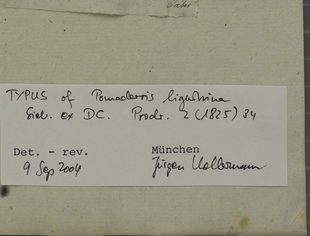 TYPUS of Pomaderris ligustrina
Sieb. ex DC. Prodr. 2 (1825) 34
Det. - rev. München
9 Sep 2004 Jürgen Kellermann